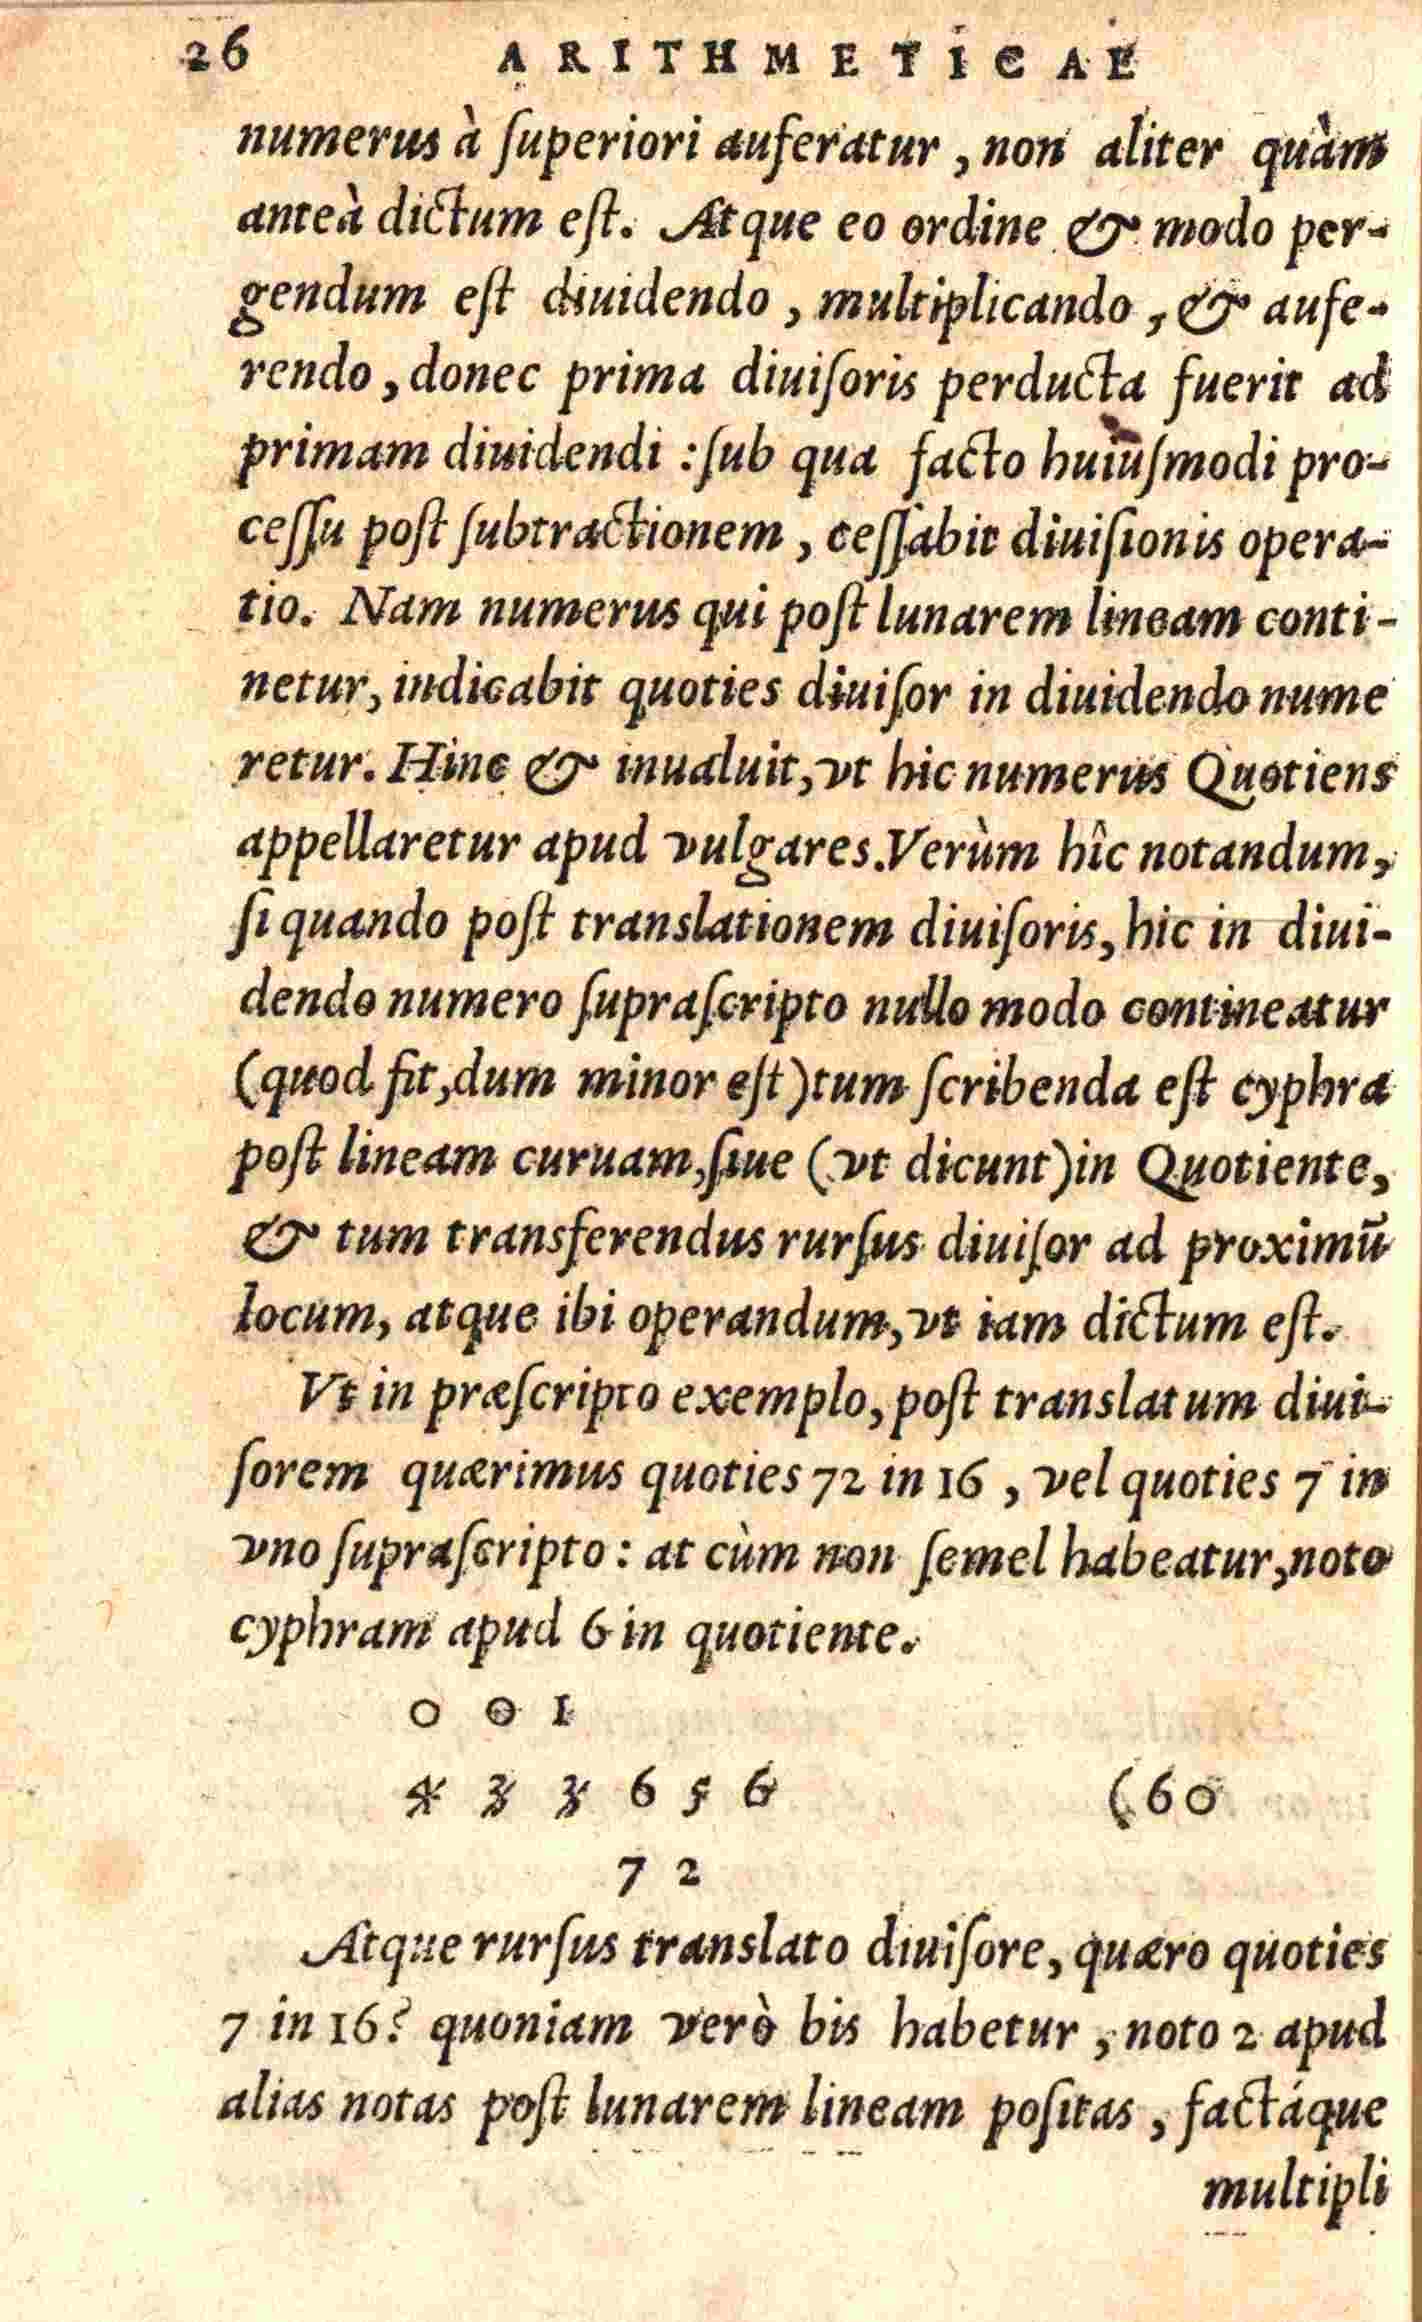 26 ARITHMETICAE
numerus à ſuperiori auferatur, non aliter quàm
anteà dictum eſt. Atque eo ordine & modo per-
gendum eſt diuidendo, multiplicando, & aufe-
rendo, donec prima diuiſoris perducta fuerit ad
primam diuidendi : ſub qua facto huiuſmodi pro-
ceſſu poſt ſubtractionem, ceſſabit diuiſionis opera-
tio. Nam numerus qui poſt lunarem lineam conti-
netur, indicabit quoties diuiſor in diuidendo nume
retur. Hinc & inualuit, vt hic numerus Quotiens
appellaretur apud vulgares. Verùm hîc notandum,
ſi quando poſt translationem diuiſoris, hic in diui-
dendo numero ſupraſcripto nullo modo contineatur
(quod fit, dum minor eſt) tum ſcribenda eſt cyphra
poſt lineam curuam, ſiue (vt dicunt) in Quotiente,
& tum transferendus rurſus diuiſor ad proximū
locum, atque ibi operandum, vt iam dictum eſt.
Vt in præſcripto exemplo, poſt translatum diui-
ſorem quærimus quoties 72 in 16, vel quoties 7 in
vno ſupraſcripto : at cùm non ſemel habeatur, noto
cyphram apud 6 in quotiente.
0 0 1
4 3 3 6 5 6 (60
7 2
Atque rurſus translato diuiſore, quæro quoties
7 in 16? quoniam verò bis habetur, noto 2 apud
alias notas poſt lunarem lineam poſitas, factáque
multipli